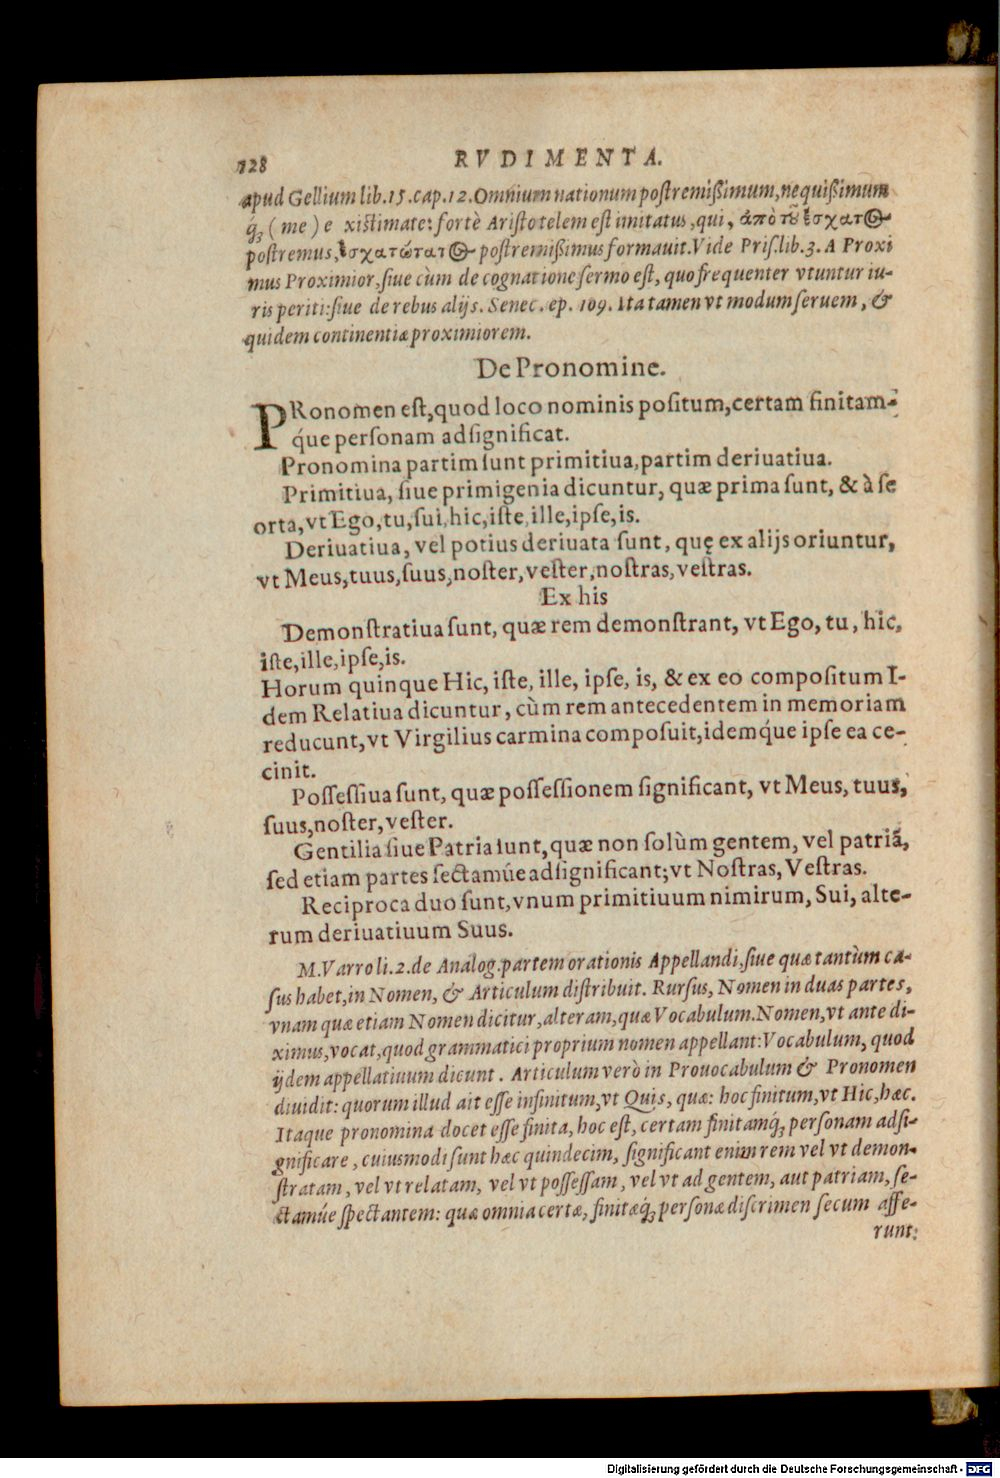 128 RVDIMENTA.
apud Gellium lib.15.cap.12.Omnium nationum postremißimum,nequißimum
q́ꝫ (me) e xistimate: fortè Aristotelem est imitatus, qui, ἀπὸ τȣ͂ ἔσχατος
postremus, ἐσχατώτατος postremißimus formauit. Vide Pris.lib.3. A Proxi
mus Proximior, siue cùm de cognatione sermo est, quo frequenter vtuntur iu-
ris periti: siue de rebus alijs. Senec. ep. 109. Ita tamen vt modum seruem, &
quidem continentiæ proximiorem.
De Pronomine.
PRonomen est, quod loco nominis positum, certam finitam-
q́ue personam adsignificat.
Pronomina partim sunt primitiua, partim deriuatiua.
Primitiua, siue primigenia dicuntur, quæ prima sunt, & à se
orta, vt Ego, tu, sui, hic, iste, ille, ipse, is.
Deriuatiua, vel potius deriuata sunt, quę ex alijs oriuntur,
vt Meus, tuus, suus, noster, vester, nostras, vestras.
Ex his
Demonstratiua sunt, quæ rem demonstrant, vt Ego, tu, hic,
iste, ille, ipse, is.
Horum quinque Hic, iste, ille, ipse, is, & ex eo compositum I-
dem Relatiua dicuntur, cùm rem antecedentem in memoriam
reducunt, vt Virgilius carmina composuit, idemq́ue ipse ea ce-
cinit.
Possessiua sunt, quæ possessionem significant, vt Meus, tuus,
suus, noster, vester.
Gentilia siue Patria sunt, quæ non solùm gentem, vel patriã,
sed etiam partes sectamúe adsignificant; vt Nostras, Vestras.
Reciproca duo sunt, vnum primitiuum nimirum, Sui, alte-
rum deriuatiuum Suus.
M. Varro li.2. de Analog. partem orationis Appellandi, siue quæ tantùm ca-
sus habet, in Nomen, & Articulum distribuit. Rursus, Nomen in duas partes,
vnam quæ etiam Nomen dicitur, alteram, quæ Vocabulum. Nomen, vt ante di-
ximus, vocat, quod grammatici proprium nomen appellant: Vocabulum, quod
ijdem appellatiuum dicunt. Articulum verò in Prouocabulum & Pronomen
diuidit: quorum illud ait esse infinitum, vt Quis, quæ: hoc finitum, vt Hic, hæc.
Itaque pronomina docet esse finita, hoc est, certam finitamq́ꝫ personam adsi-
gnificare, cuiusmodi sunt hæc quindecim, significant enim rem vel vt demon-
stratam, vel vt relatam, vel vt possessam, vel vt ad gentem, aut patriam, se-
ctamúe spectantem: quæ omnia certæ, finitæq́ꝫ personæ discrimen secum affe-
runt:
Digitalisierung gefördert durch die Deutsche Forschungsgemeinschaft - DFG